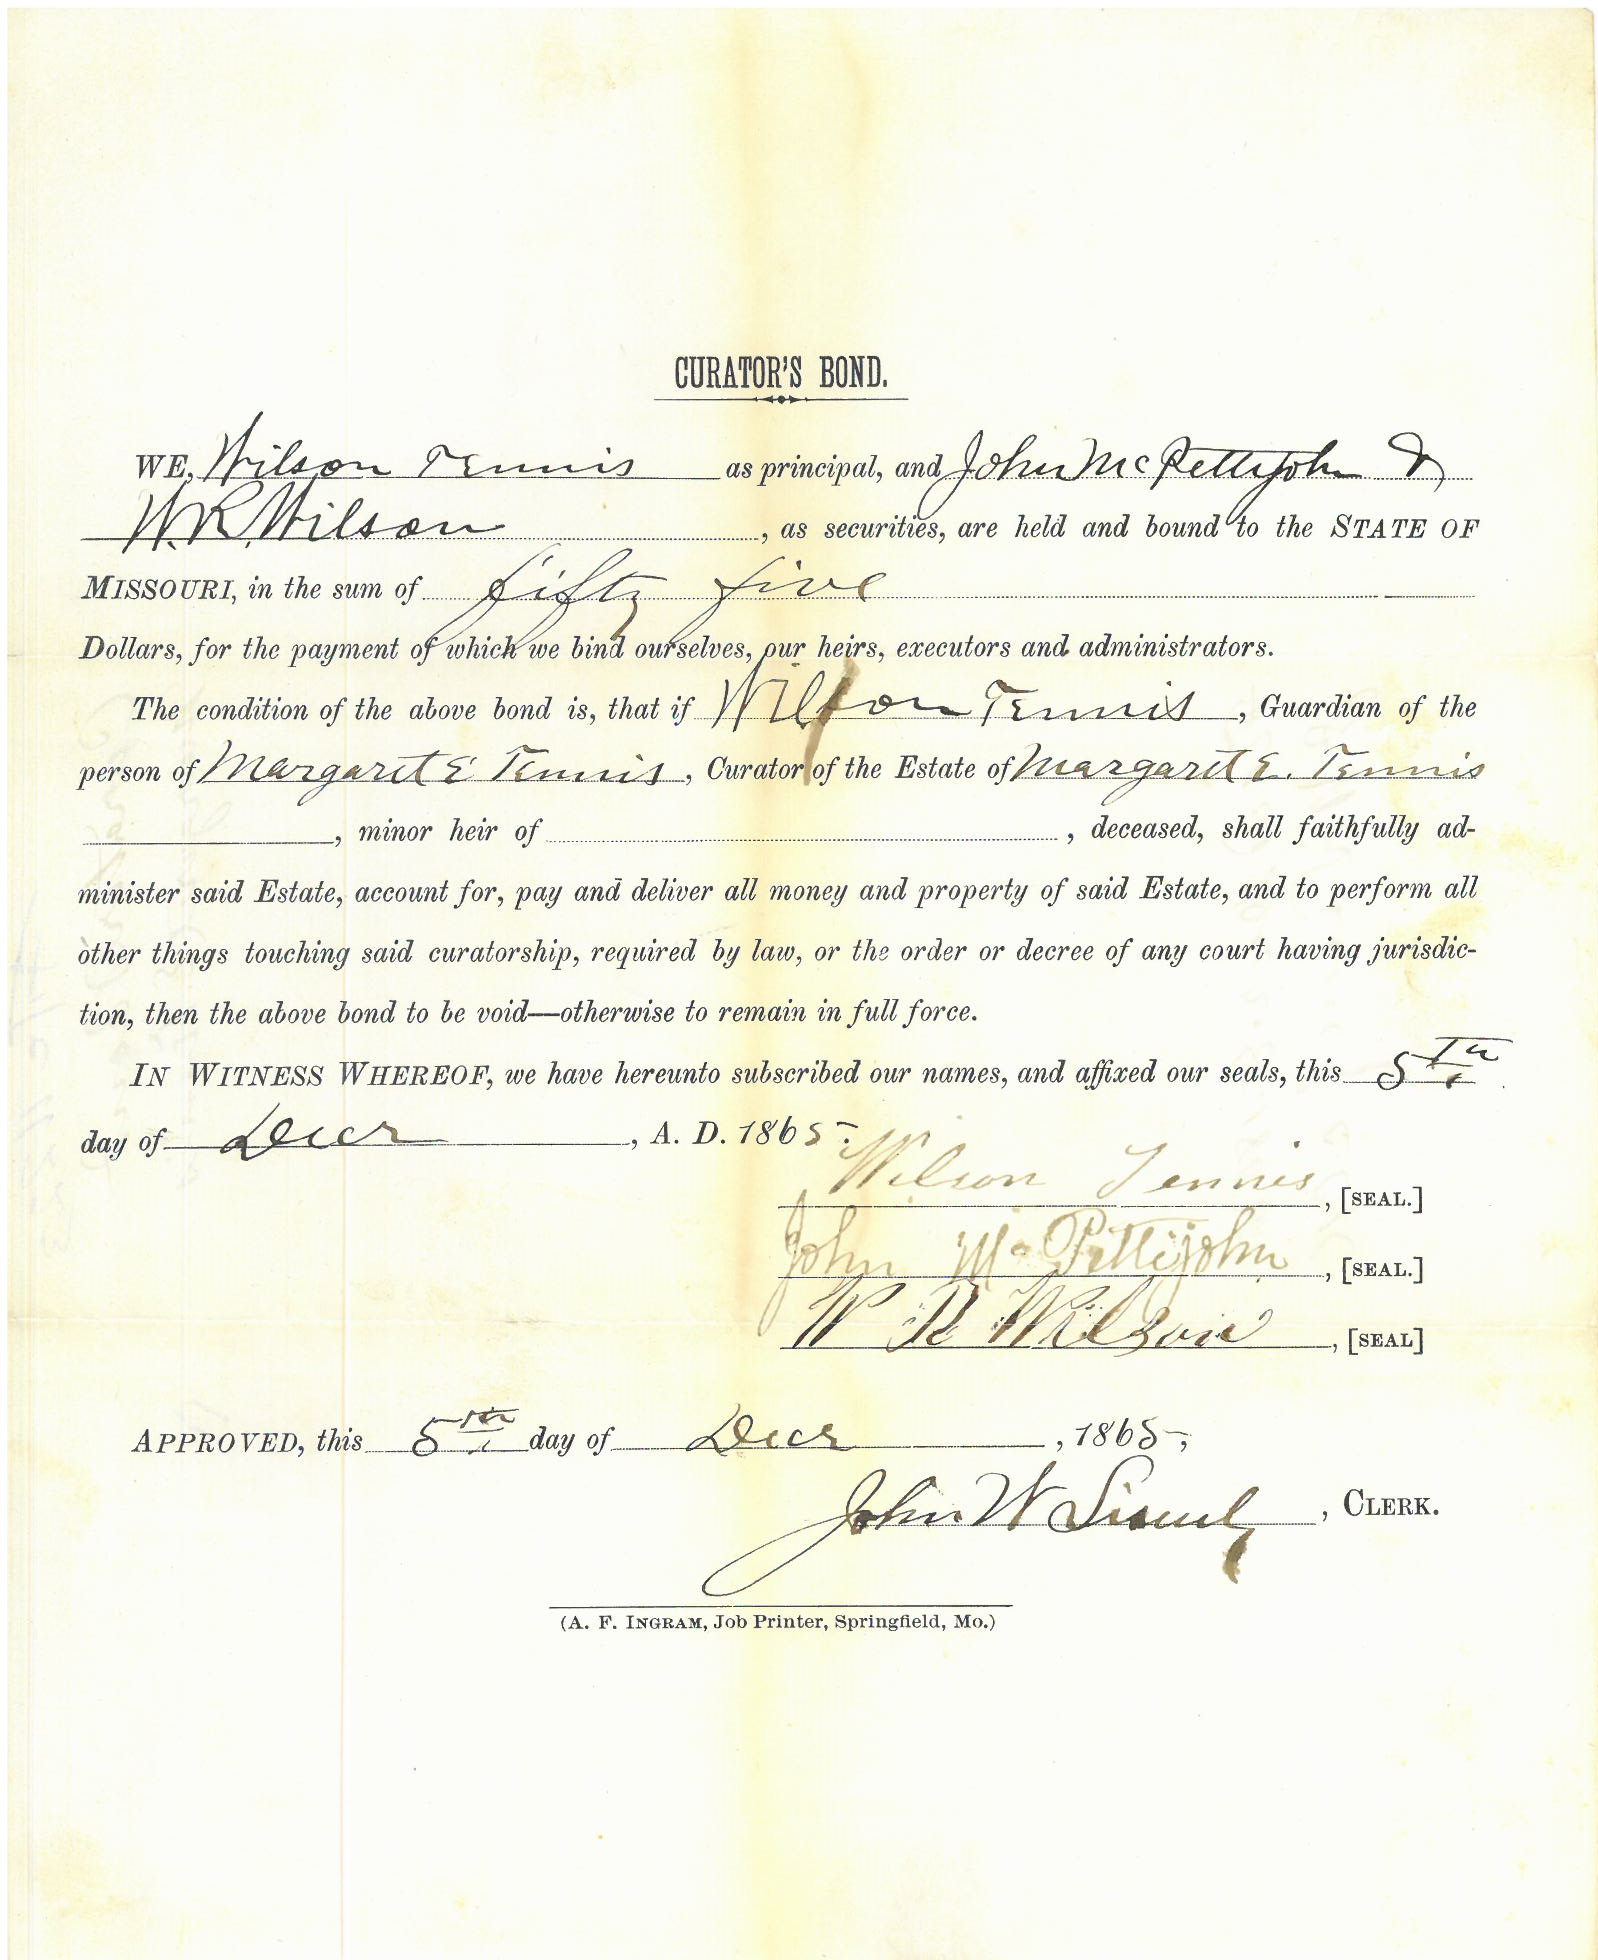 CURATOR'S BOND.
WE, Wilson Tennis as principal, and John McPettijohn &
W. R. Wilson, as securities, are held and bound to the STATE OF
MISSOURI, in the sum of fifty five
Dollars, for the payment of which we bind ourselves, our heirs, executors and administrators.
The condition of the above bond is, that if Wilson Tennis, Guardian of the
person of Margaret E Tennis, Curator of the Estate of Margaret E. Tennis
, minor heir of , deceased, shall faithfully ad-
minister said Estate, account for, pay and deliver all money and property of said Estate, and to perform all
other things touching said curatorship, required by law, or the order or decree of any court having jurisdic-
tion, then the above bond to be void—otherwise to remain in full force.
IN WITNESS WHEREOF, we have hereunto subscribed our names, and affixed our seals, this 5th
day of Decr, A. D. 1865.
Wilson Tennis, [SEAL.]
John Mc Pettijohn, [SEAL.]
W R Wilson, [SEAL]
APPROVED, this 5th day of Decr, 1865,
John W , CLERK.
(A. F. INGRAM, Job Printer, Springfield, Mo.)